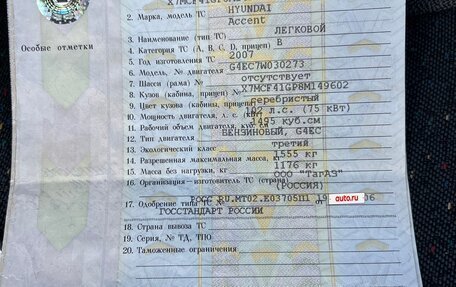 Особые отметки
2. Марка, модель ТС HYUNDAI
Accent
3. Наименование (тип ТС) ЛЕГКОВОЙ
4. Категория ТС (A, B, C, D, прицеп) B
5. Год изготовления ТС 2007
6. Модель, № двигателя G4EC7W030273
7. Шасси (рама) № отсутствует
8. Кузов (кабина, прицеп) № X7MCF41GP8M149602
9. Цвет кузова (кабины, прицепа) серебристый
10. Мощность двигателя, л. с. (кВт) 102 л.с. (75 кВт)
11. Рабочий объем двигателя, куб. см 1495 куб.см
12. Тип двигателя БЕНЗИНОВЫЙ, G4EC
13. Экологический класс третий
14. Разрешенная максимальная масса, кг 1555 кг
15. Масса без нагрузки, кг 1176 кг
16. Организация—изготовитель ТС (страна) ООО "ТагАЗ"
(РОССИЯ)
17. Одобрение типа ТС № РОСС RU.MT02.E03705П1
ГОССТАНДАРТ РОССИИ
auto.ru
18. Страна вывоза ТС
19. Серия, № ТД, ТПО
20. Таможенные ограничения